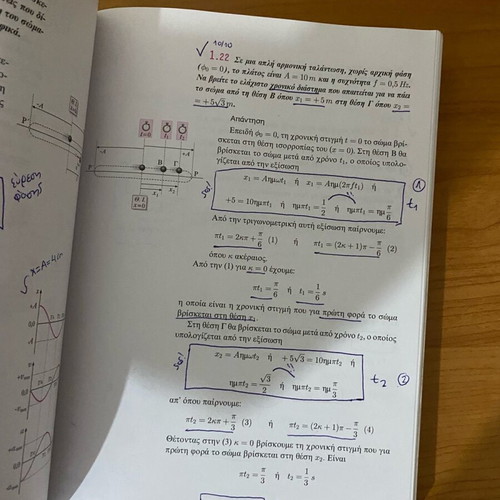 10/10
✓ 1.22 Σε μια απλή αρμονική ταλάντωση, χωρίς αρχική φάση
(φ₀ = 0), το πλάτος είναι A = 10 m και η συχνότητα f = 0,5 Hz.
Να βρείτε το ελάχιστο χρονικό διάστημα που απαιτείται για να πάει
το σώμα από τη θέση Β όπου x₁ = +5 m στη θέση Γ όπου x₂ =
= +5√3 m.
Απάντηση
Επειδή φ₀ = 0, τη χρονική στιγμή t = 0 το σώμα βρί-
σκεται στη θέση ισορροπίας του (x = 0). Στη θέση Β θα
βρίσκεται το σώμα μετά από χρόνο t₁, ο οποίος υπολο-
γίζεται από την εξίσωση
x₁ = Aημωt₁ ή x₁ = Aημ(2πft₁) ή
+5 = 10ημπt₁ ή ημπt₁ = 1/2 ή ημπt₁ = ημ π/6
① t₁
Από την τριγωνομετρική αυτή εξίσωση παίρνουμε:
πt₁ = 2κπ + π/6 (1) ή πt₁ = (2κ + 1)π − π/6 (2)
όπου κ ακέραιος.
Από την (1) για κ = 0 έχουμε:
πt₁ = π/6 ή t₁ = 1/6 s
η οποία είναι η χρονική στιγμή που για πρώτη φορά το σώμα
βρίσκεται στη θέση x₁.
Στη θέση Γ θα βρίσκεται το σώμα μετά από χρόνο t₂, ο οποίος
υπολογίζεται από την εξίσωση
x₂ = Aημωt₂ ή +5√3 = 10ημπt₂ ή
ημπt₂ = √3/2 ή ημπt₂ = ημ π/3
t₂ ②
απ' όπου παίρνουμε:
πt₂ = 2κπ + π/3 (3) ή πt₂ = (2κ + 1)π − π/3 (4)
Θέτοντας στην (3) κ = 0 βρίσκουμε τη χρονική στιγμή που για
πρώτη φορά το σώμα βρίσκεται στη θέση x₂. Είναι
πt₂ = π/3 ή t₂ = 1/3 s
-A
A
P
P
B
Γ
Θ.Ι.
x=0
x₁
x₂
t=0
t₁
t₂
εύρεση
φάσης